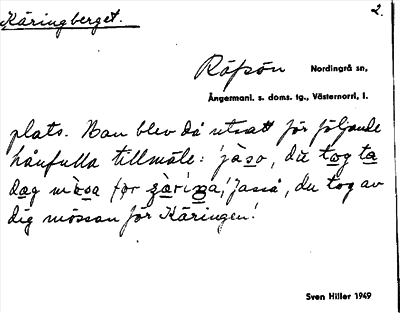 Käringberget. 2.
Röfsön Nordingrå sn,
Ångermanl. s. doms. tg., Västernorrl. l.
plats. Han blev då utsatt för följande
hånfulla tillmäle: jàso, du tog ta
dag mòsa før
, Jasså, du tog av
dig mössan för Käringen!
Sven Hiller 1949